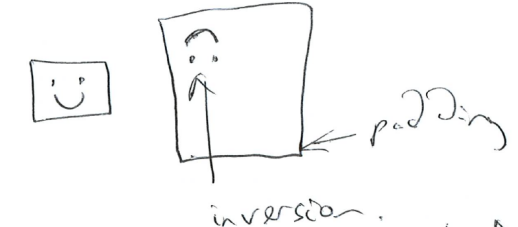 padding
inversion.